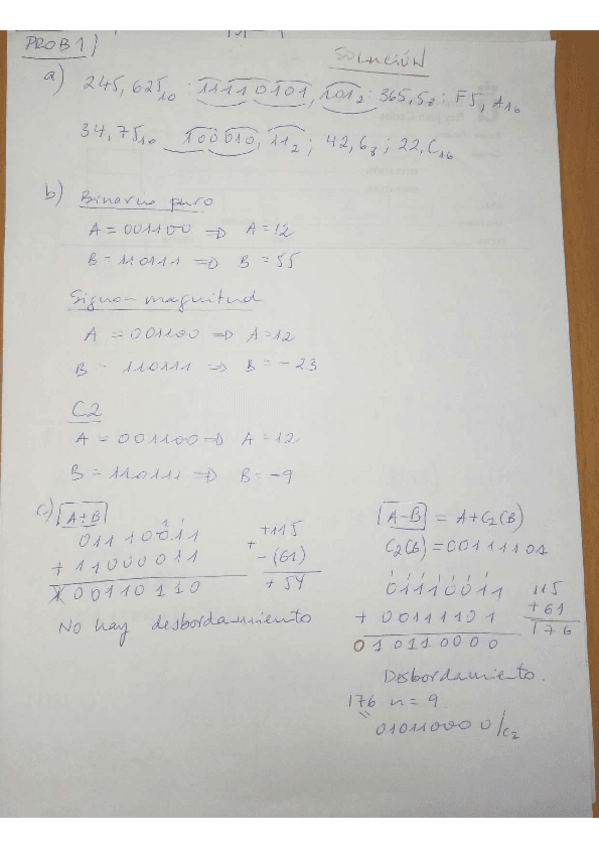 PROB 1)
SOLUCIÓN
a) 245,625₁₀ : 11110101,101₂ : 365,5₈ : F5,A₁₆
34,75₁₀ 100010,11₂ ; 42,6₈ ; 22,C₁₆
b) Binario puro
A = 001100 => A = 12
B = 110111 => B = 55
Signo-magnitud
A = 001100 => A = 12
B = 110111 => B = -23
C2
A = 001100 => A = 12
B = 110111 => B = -9
c) |A+B|
01110011
+ 11000011
1 00110110
+115
+ -(61)
+54
No hay desbordamiento
|A-B| = A+C₂(B)
C₂(B) = 00111101
01110011
+ 00111101
010110000
115
+61
176
Desbordamiento.
176 n = 9
010110000/C₂